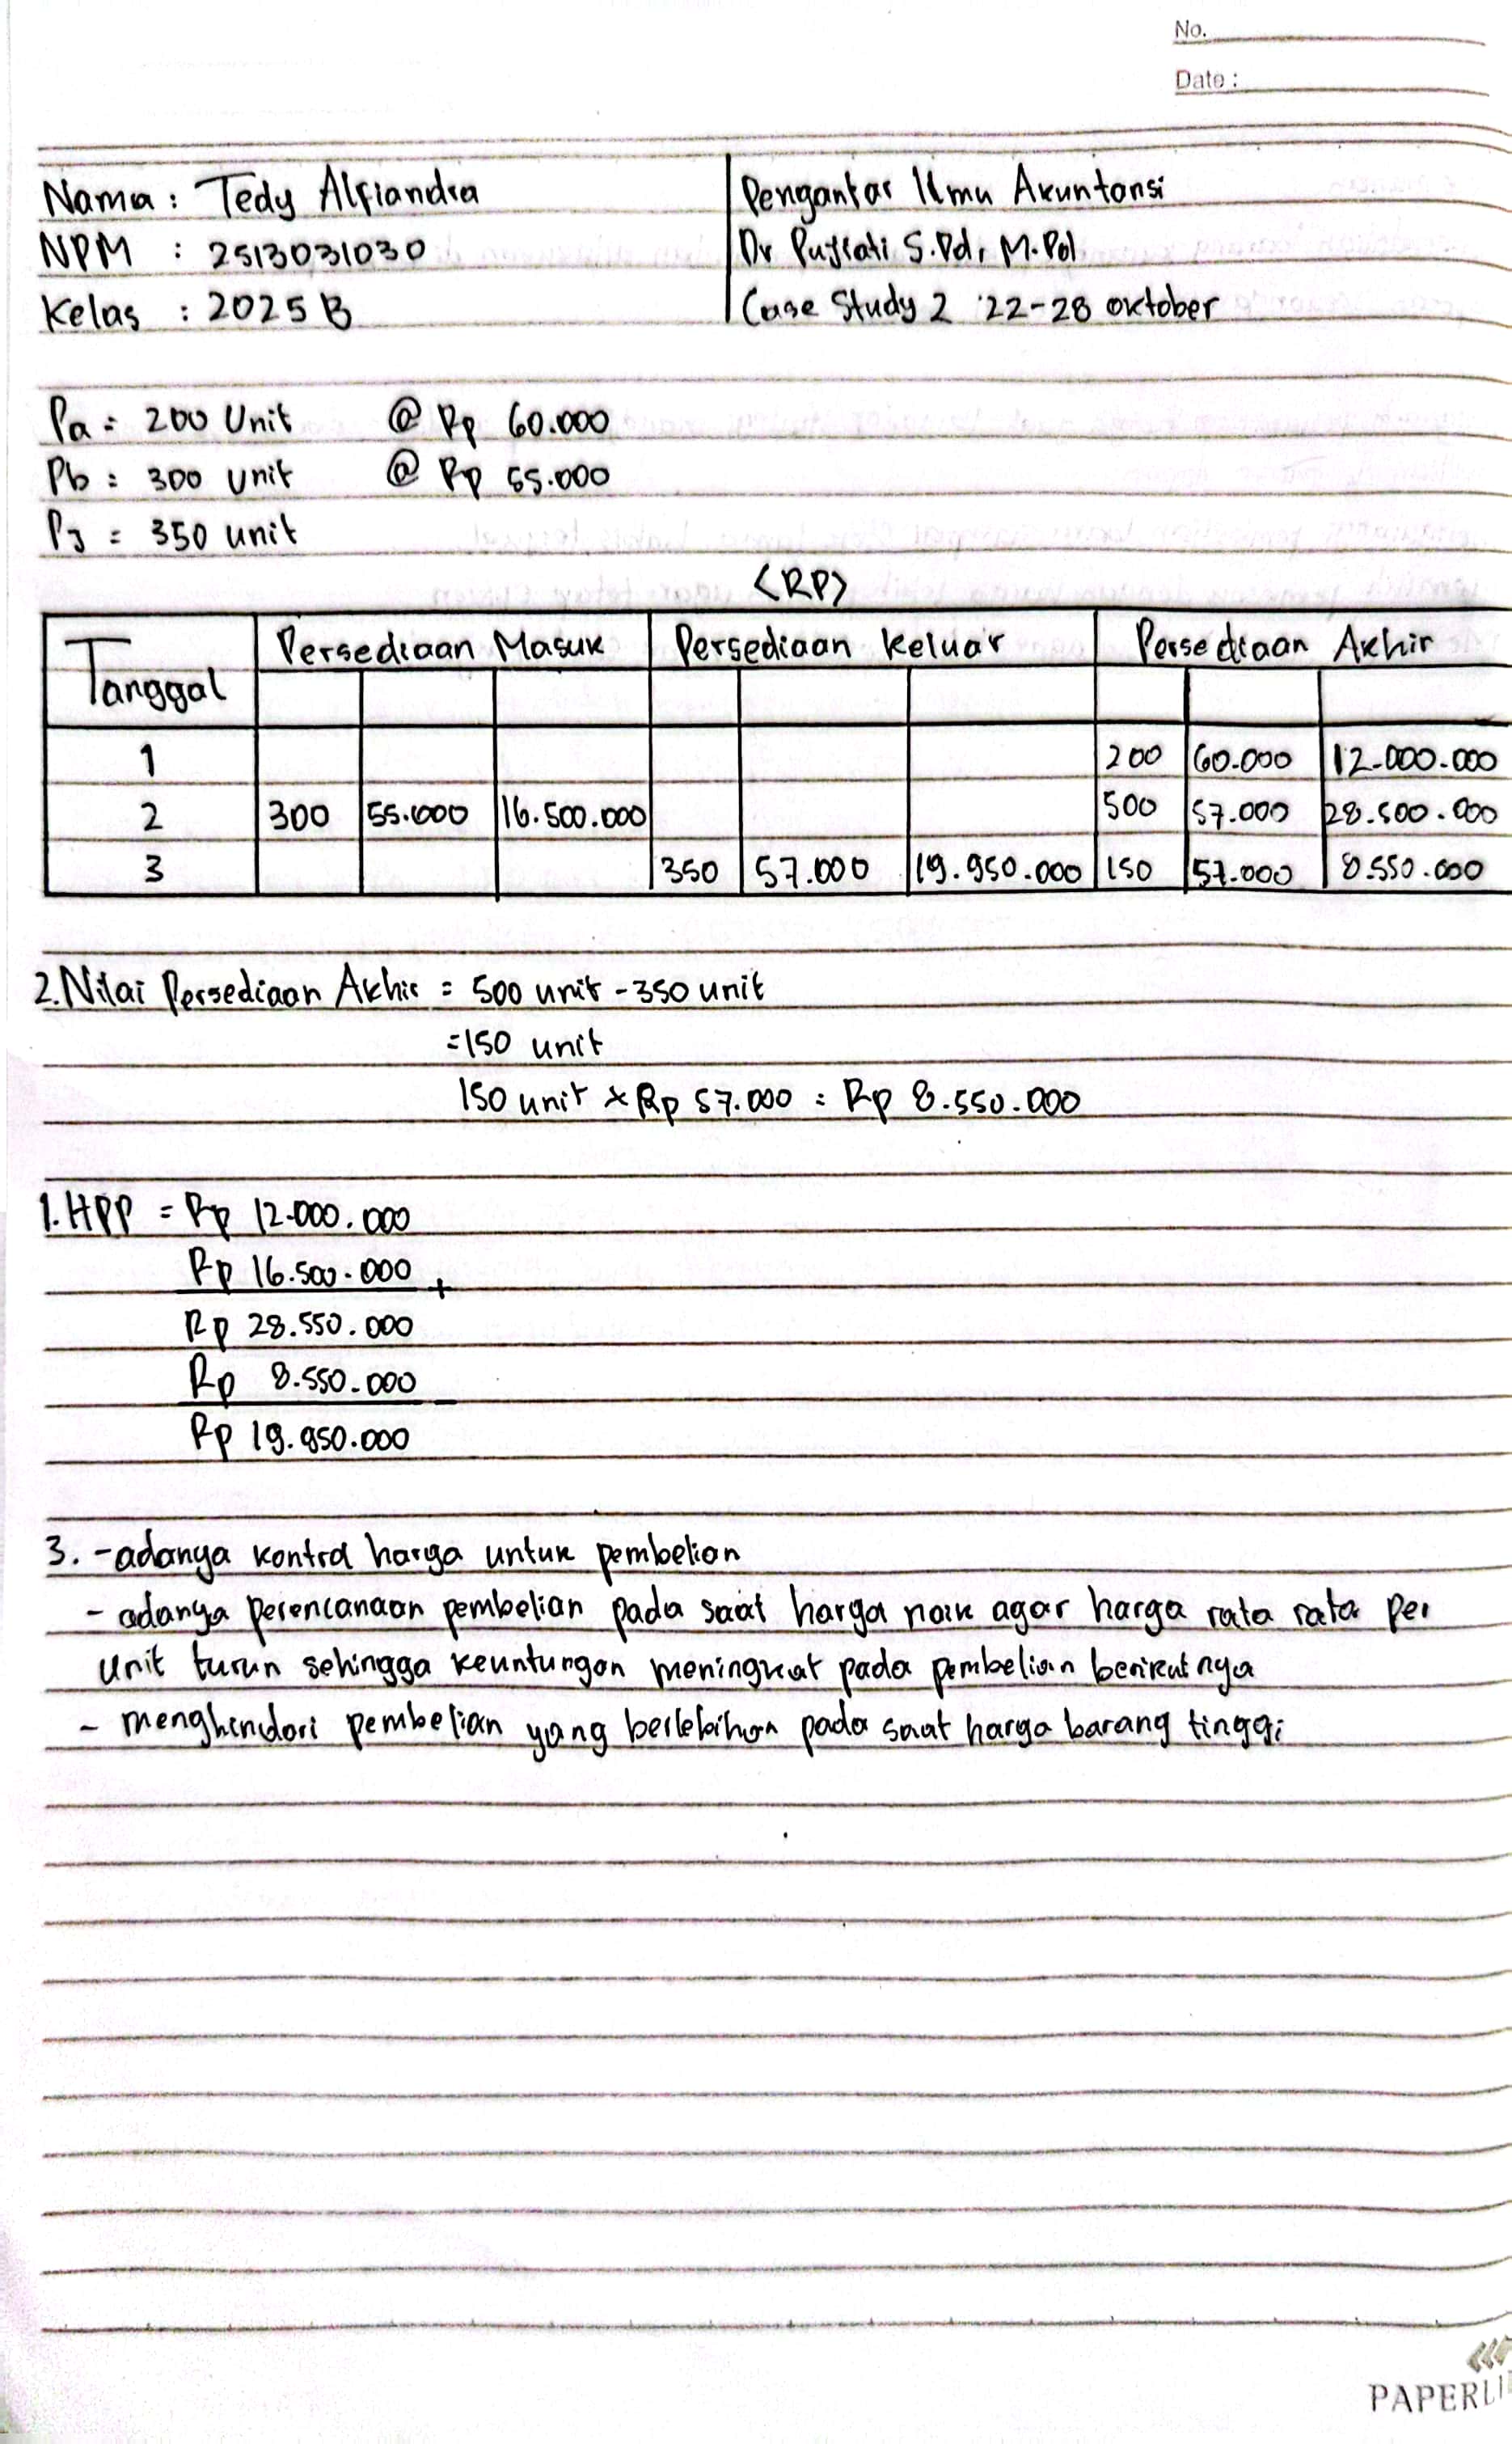 No.
Date :
Nama : Tedy Alfiandra
NPM : 2513031030
Kelas : 2025 B
Pengantar Ilmu Akuntansi
Dr Pujiati S.Pd, M.Pd
Case Study 2 22-28 oktober
Pa = 200 Unit @ Rp 60.000
Pb = 300 unit @ Rp 55.000
PJ = 350 unit
<RP>
Tanggal Persediaan Masuk Persediaan Keluar Persediaan Akhir
1 200 60.000 12.000.000
2 300 55.000 16.500.000 500 57.000 28.500.000
3 350 57.000 19.950.000 150 57.000 8.550.000
2. Nilai Persediaan Akhir = 500 unit - 350 unit
= 150 unit
150 unit x Rp 57.000 = Rp 8.550.000
1. HPP = Rp 12.000.000
Rp 16.500.000 +
Rp 28.550.000
Rp 8.550.000 -
Rp 19.950.000
3. - adanya kontrol harga untuk pembelian
- adanya perencanaan pembelian pada saat harga naik agar harga rata rata per
unit turun sehingga keuntungan meningkat pada pembelian berikutnya
- menghindari pembelian yang berlebihan pada saat harga barang tinggi
PAPERLI